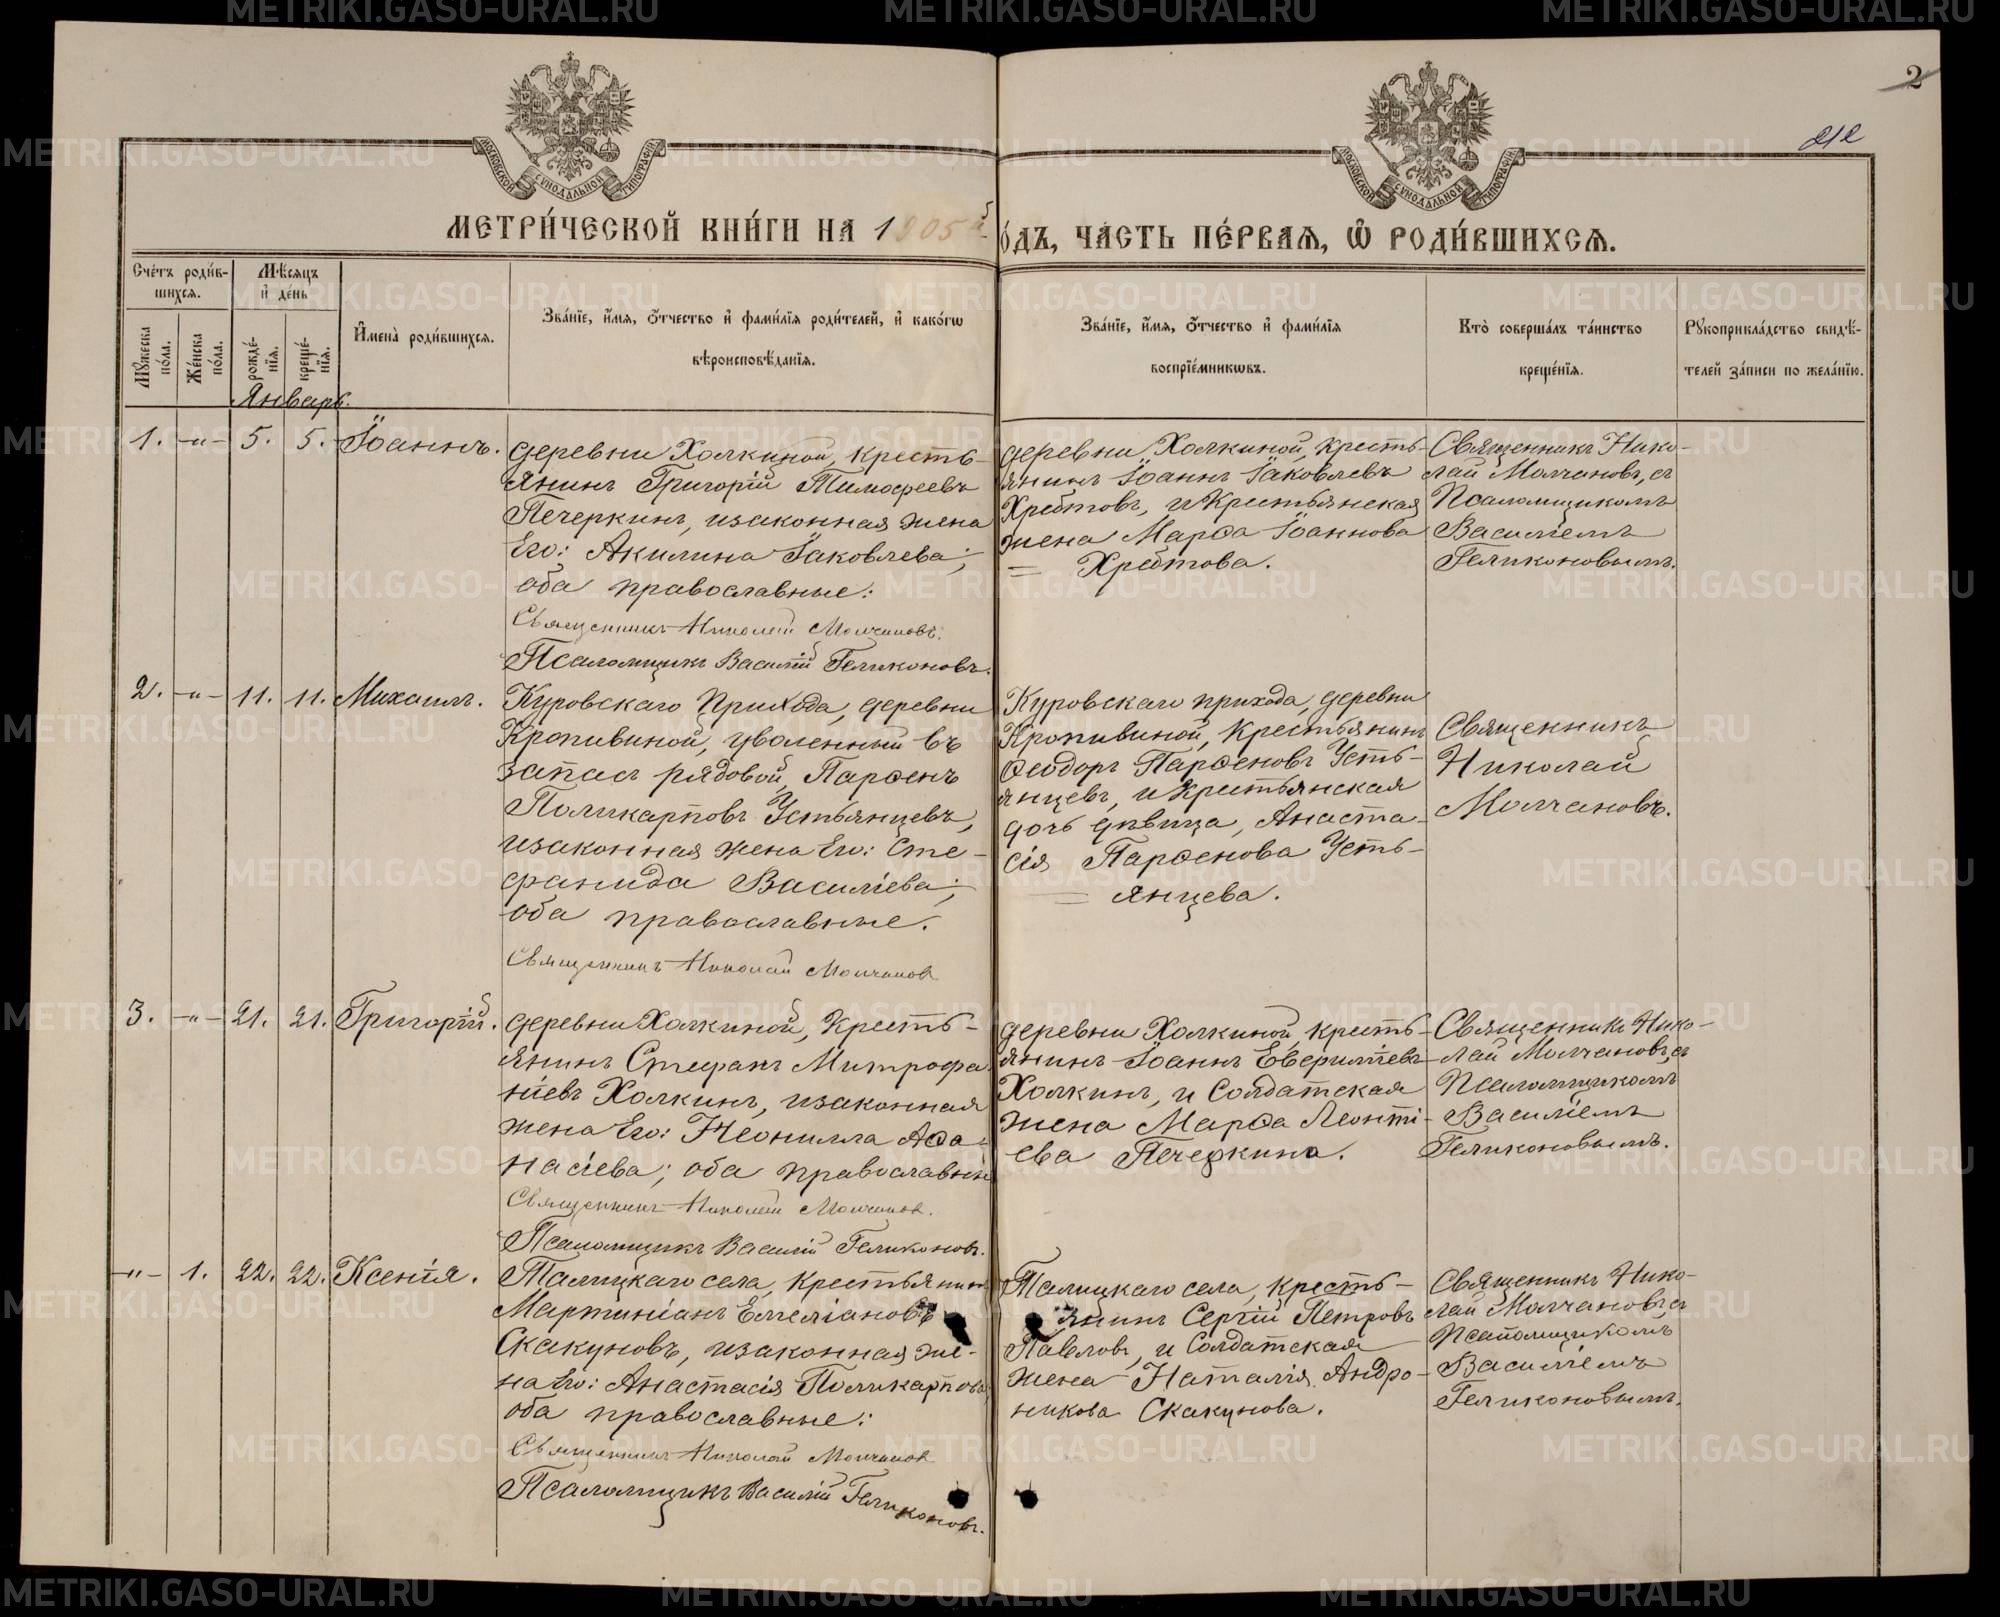 METRIKI.GASO-URAL.RU
2
212
МОСКОВСКОЙ СѴНОДАЛЬНОЙ ТИПОГРАФІИ
МОСКОВСКОЙ СѴНОДАЛЬНОЙ ТИПОГРАФІИ
МЕТРИ́ЧЕСКОЙ КНИ́ГИ НА 1905й
О́ДЪ, ЧА́СТЬ ПЕ́РВАЯ, Ѿ РОДИ́ВШИХСЯ.
Сче́тъ роди́в-
шихся.
Мѣ́сяцъ
и҆ де́нь
Мꙋ́жеска по́ла.
Же́нска по́ла.
рожде́-нїя.
креще́-нїя.
И҆мена̀ роди́вшихся.
Зва́нїе, и҆́мя, ѻ҆́тчество и҆ фами́лїя роди́телей, и҆ како́гѡ
вѣроисповѣ́данїя.
Зва́нїе, и҆́мя, ѻ҆́тчество и҆ фами́лїя
воспрїе́мникѡвъ.
Кто̀ соверша́лъ та́инство
креще́нїя.
Рꙋкоприкла́дство свидѣ́-
телей за́писи по жела́нїю.
Январь.
1. -„- 5. 5. Іоаннъ.
деревни Холкиной, кресть-
янинъ Григорій Тимофеевъ
Печеркинъ, изаконная жена
Его: Акилина Іаковлева;
оба православные:
Священникъ Николай Молчановъ.
Псаломщикъ Василій Геликоновъ.
деревни Холкиной, кресть-
янинъ Іоаннъ Іаковлевъ
Хребтовъ, и крестьянская
жена Марѳа Іоаннова
= Хребтова.
Священникъ Нико-
лай Молчановъ, съ
Псаломщикомъ
Василіемъ
Геликоновымъ.
2. -„- 11. 11. Михаилъ.
Куровскаго Прихода, деревни
Кропивиной, уволенный въ
запасъ рядовой, Парѳенъ
Поликарповъ Устьянцевъ,
изаконная жена Его: Сте-
фанида Василіева;
оба православные.
Священникъ Николай Молчановъ
Куровскаго прихода, деревни
Кропивиной, Крестьянинъ
Ѳеодоръ Парѳеновъ Усть-
янцевъ, и Крестьянская
дочь девица, Анаста-
сія Парѳенова Усть-
= янцева.
Священникъ
Николай
Молчановъ.
3. -„- 21. 21. Григорій.
деревни Холкиной, Кресть-
янинъ Стефанъ Митрофа
ніевъ Холкинъ, изаконная
жена Его: Неонилла Аѳа-
насіева; оба православны
Священникъ Николай Молчановъ.
Псаломщикъ Василій Геликоновъ.
деревни Холкиной, кресть-
янинъ Іоаннъ Евфиміевъ
Холкинъ, и Солдатская
жена Марѳа Леонті-
ева Печеркина.
Священникъ Нико-
лай Молчановъ, съ
Псаломщикомъ
Василіемъ
Геликоновымъ.
-„- 1. 22. 22. Ксенія.
Талицкаго села, Крестьянинъ
Мартиніанъ Емеліановъ
Скакуновъ, изаконная же-
на Его: Анастасія Поликарпова
оба православные:
Священникъ Николай Молчановъ
Псаломщикъ Василій Геликоновъ.
Талицкаго села, Кресть-
янинъ Сергій Петровъ
Павловъ, и Солдатская
жена Наталія Андро-
никова Скакунова.
Священникъ Нико-
лай Молчановъ, съ
Псаломщикомъ
Василіемъ
Геликоновымъ.